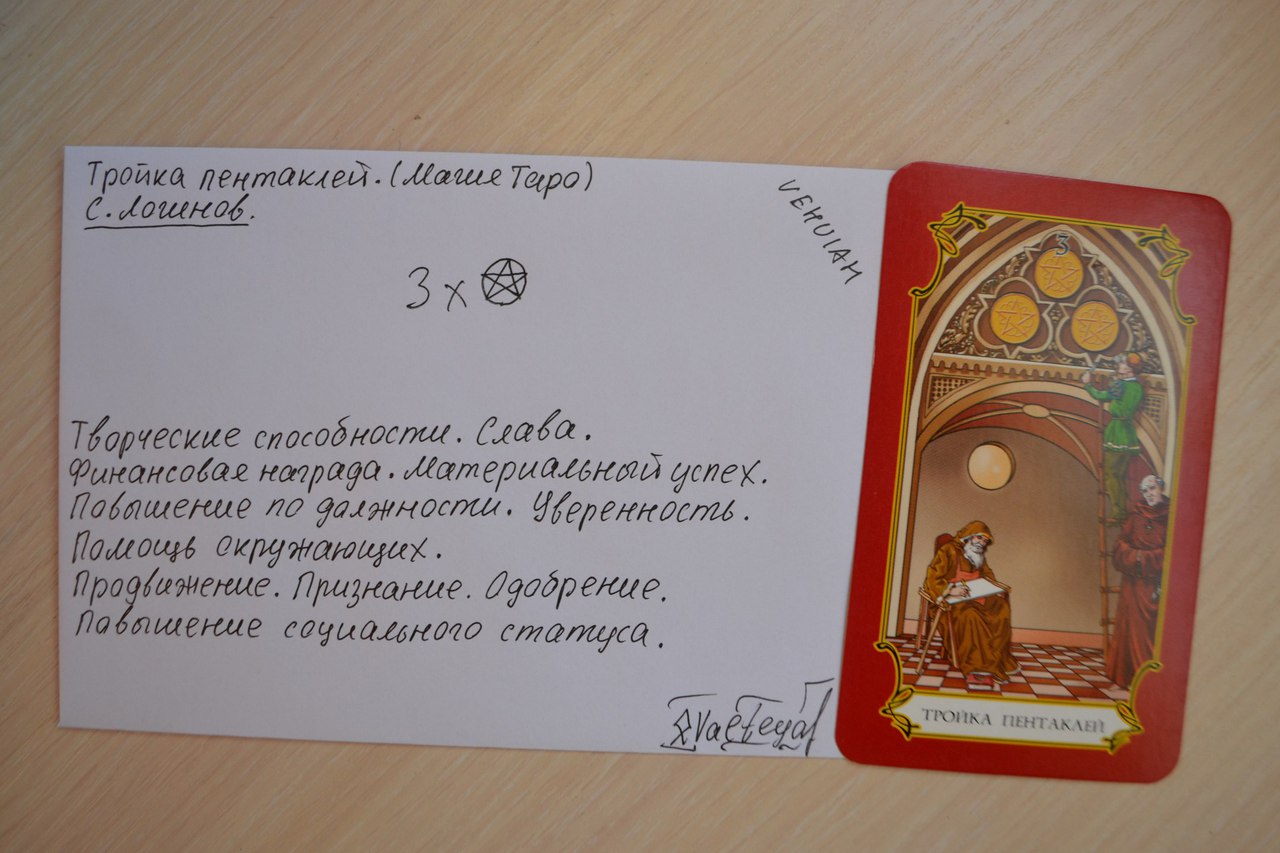 Тройка пентаклей. (Магия Таро)
С. Логинов.
VEHUIAH
3 х
Творческие способности. Слава.
Финансовая награда. Материальный успех.
Павышение по должности. Уверенность.
Помощь окружающих.
Продвижение. Признание. Одобрение.
Павышение социального статуса.
3
ТРОЙКА ПЕНТАКЛЕЙ